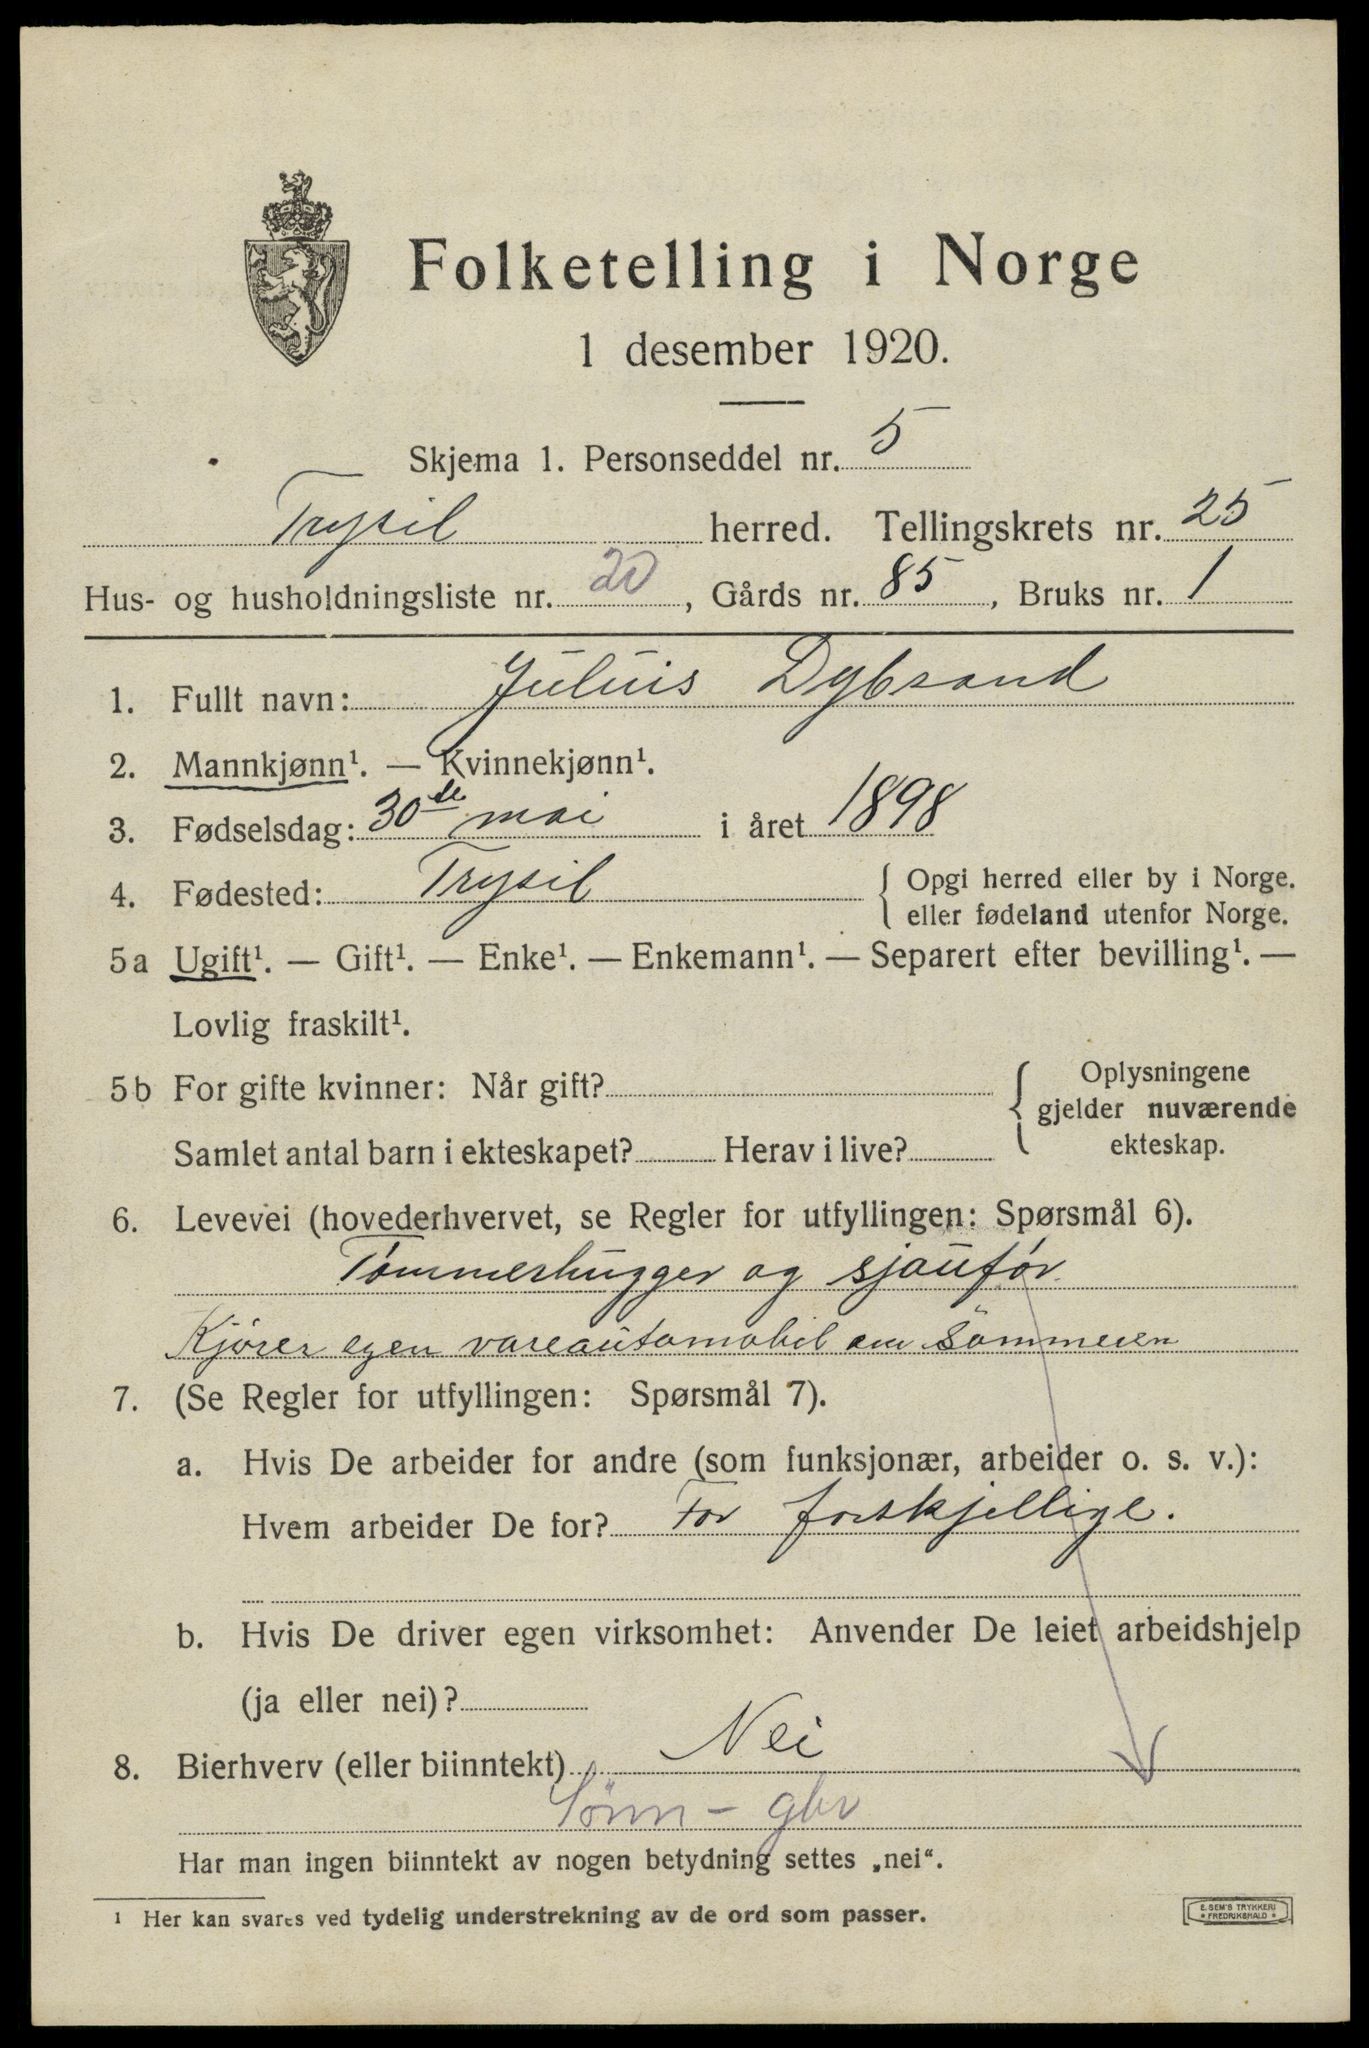 Folketelling i Norge
1 desember 1920.
Skjema 1. Personseddel nr. 5
Trysil herred. Tellingskrets nr. 25
Hus- og husholdningsliste nr. 20, Gårds nr. 85, Bruks nr. 1
1. Fullt navn: Juluis Dybsand
2. Mannkjønn¹. — Kvinnekjønn¹.
3. Fødselsdag: 30de mai i året 1898
4. Fødested: Trysil { Opgi herred eller by i Norge.
eller fødeland utenfor Norge.
5a Ugift¹. — Gift¹. — Enke¹. — Enkemann¹. — Separert efter bevilling¹. —
Lovlig fraskilt¹.
5b For gifte kvinner: Når gift? { Oplysningene
gjelder nuværende
Samlet antal barn i ekteskapet? Herav i live? ekteskap.
6. Levevei (hovederhvervet, se Regler for utfyllingen: Spørsmål 6).
Tømmerhugger og sjaufør
Kjører egen vareautomobil om sommeren
7. (Se Regler for utfyllingen: Spørsmål 7).
a. Hvis De arbeider for andre (som funksjonær, arbeider o. s. v.):
Hvem arbeider De for? For forskjellige.
b. Hvis De driver egen virksomhet: Anvender De leiet arbeidshjelp
(ja eller nei)?
8. Bierhverv (eller biinntekt) Nei
Sønn - gbr
Har man ingen biinntekt av nogen betydning settes „nei“.
¹ Her kan svares ved tydelig understrekning av de ord som passer.
E. SEM'S TRYKKERI
* FREDRIKSHALD *